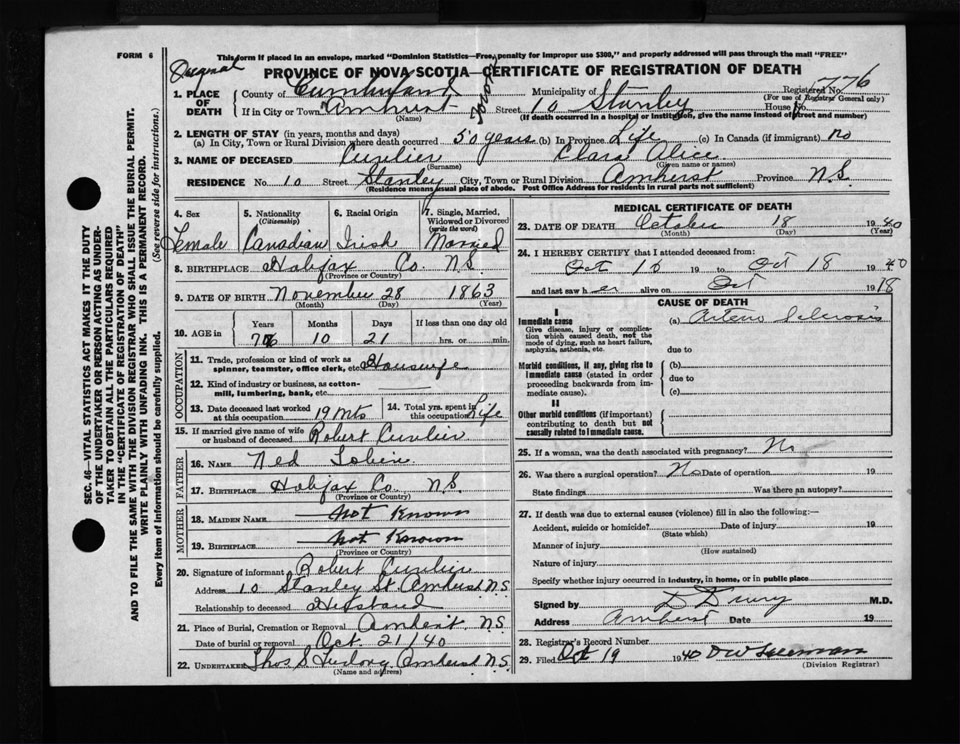 FORM 6
This form if placed in an envelope, marked "Dominion Statistics—Free, penalty for improper use $300," and properly addressed will pass through the mail "FREE"
Original
PROVINCE OF NOVA SCOTIA—CERTIFICATE OF REGISTRATION OF DEATH
1. PLACE OF DEATH
County of Cumberland Municipality of Registered No. 776
(For use of Registrar General only)
If in City or Town Amherst Street 10 Stanley House No.
(Name) (If death occurred in a hospital or institution, give the name instead of street and number)
2. LENGTH OF STAY (in years, months and days)
(a) In City, Town or Rural Division where death occurred 50 years (b) In Province Life (c) In Canada (if immigrant) no
3. NAME OF DECEASED Clara Alice
(Surname) (Given name or names)
RESIDENCE No. 10 Street Stanley City, Town or Rural Division Amherst Province N.S.
(Residence means usual place of abode. Post Office Address for residents in rural parts not sufficient)
4. Sex 5. Nationality (Citizenship) 6. Racial Origin 7. Single, Married, Widowed or Divorced (write the word)
Female Canadian Irish Married
8. BIRTHPLACE Halifax Co. N.S.
(Province or Country)
9. DATE OF BIRTH November 28 1863
(Month) (Day) (Year)
10. AGE in Years Months Days If less than one day old
76 10 21 hrs. or min.
OCCUPATION
11. Trade, profession or kind of work as spinner, teamster, office clerk, etc. Housewife
12. Kind of industry or business, as cotton-mill, lumbering, bank, etc.
13. Date deceased last worked at this occupation 19 Mts 14. Total yrs. spent in this occupation Life
15. If married give name of wife or husband of deceased Robert
FATHER
16. NAME Ned Tobin
17. BIRTHPLACE Halifax Co. N.S.
(Province or Country)
MOTHER
18. MAIDEN NAME Not Known
19. BIRTHPLACE Not Known
(Province or Country)
20. Signature of informant Robert
Address 10 Stanley St. Amherst N.S.
Relationship to deceased Husband
21. Place of Burial, Cremation or Removal Amherst N.S.
Date of burial or removal Oct. 21/40
22. UNDERTAKER Thos S Furlong Amherst N.S.
(Name and address)
MEDICAL CERTIFICATE OF DEATH
23. DATE OF DEATH October 18 1940
(Month) (Day) (Year)
24. I HEREBY CERTIFY that I attended deceased from:
Oct 19 to Oct 18 1940
and last saw her alive on Oct 1918
CAUSE OF DEATH
I
Immediate cause
Give disease, injury or complication which caused death, not the mode of dying, such as heart failure, asphyxia, asthenia, etc.
(a) Arterio Sclerosis
due to
Morbid conditions, if any, giving rise to immediate cause (stated in order proceeding backwards from immediate cause).
(b)
due to
(c)
II
Other morbid conditions (if important) contributing to death but not causally related to immediate cause.
25. If a woman, was the death associated with pregnancy? No
26. Was there a surgical operation? No Date of operation 19
State findings Was there an autopsy?
27. If death was due to external causes (violence) fill in also the following:—
Accident, suicide or homicide? Date of injury 19
(State which)
Manner of injury
(How sustained)
Nature of injury
Specify whether injury occurred in industry, in home, or in public place
Signed by D Drury M.D.
Address Amherst Date 19
28. Registrar's Record Number
29. Filed Oct 19 1940
(Division Registrar)
SEC. 46—VITAL STATISTICS ACT MAKES IT THE DUTY
OF THE UNDERTAKER OR PERSON ACTING AS UNDER-
TAKER TO OBTAIN ALL THE PARTICULARS REQUIRED
IN THE "CERTIFICATE OF REGISTRATION OF DEATH"
AND TO FILE THE SAME WITH THE DIVISION REGISTRAR WHO SHALL ISSUE THE BURIAL PERMIT.
WRITE PLAINLY WITH UNFADING INK. THIS IS A PERMANENT RECORD.
Every item of information should be carefully supplied. (See reverse side for instructions.)